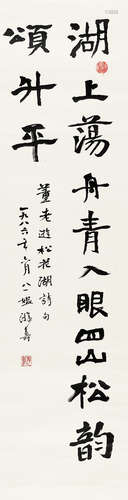 湖上荡舟青入眼四山松韵
頌升平
董老遊松花湖詩句
一九八六年六月八一叟游寿